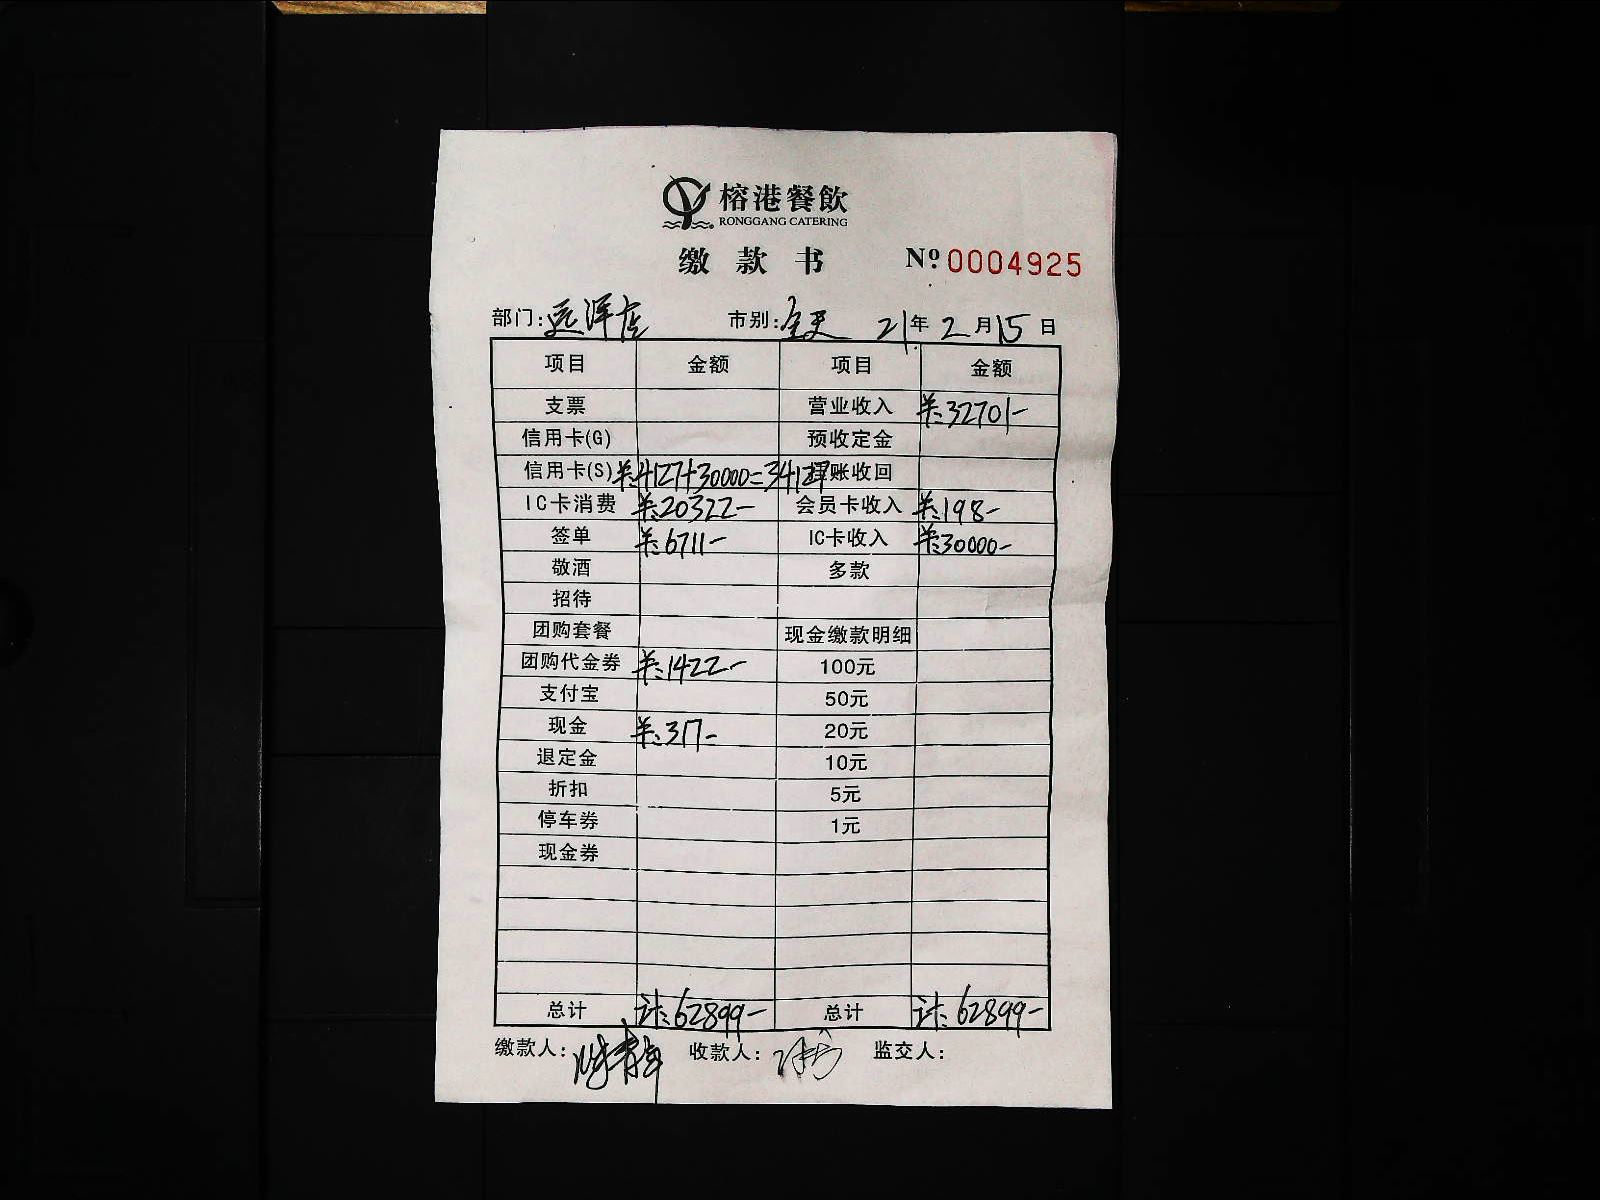 榕港餐飲
RONGGANG CATERING
缴款书 Nº 0004925
部门:远洋店 市别:全天 21年2月15日
项目 金额 项目 金额
支票 营业收入 ¥:32701-
信用卡(G) 预收定金
信用卡(S) ¥:4127+30000=34127 账收回
IC卡消费 ¥:20322- 会员卡收入 ¥:198-
签单 ¥:6711- IC卡收入 ¥:30000-
敬酒 多款
招待
团购套餐 现金缴款明细
团购代金券 ¥:1422- 100元
支付宝 50元
现金 ¥:317- 20元
退定金 10元
折扣 5元
停车券 1元
现金券
总计 计:62899- 总计 计:62899-
缴款人: 收款人: 监交人: